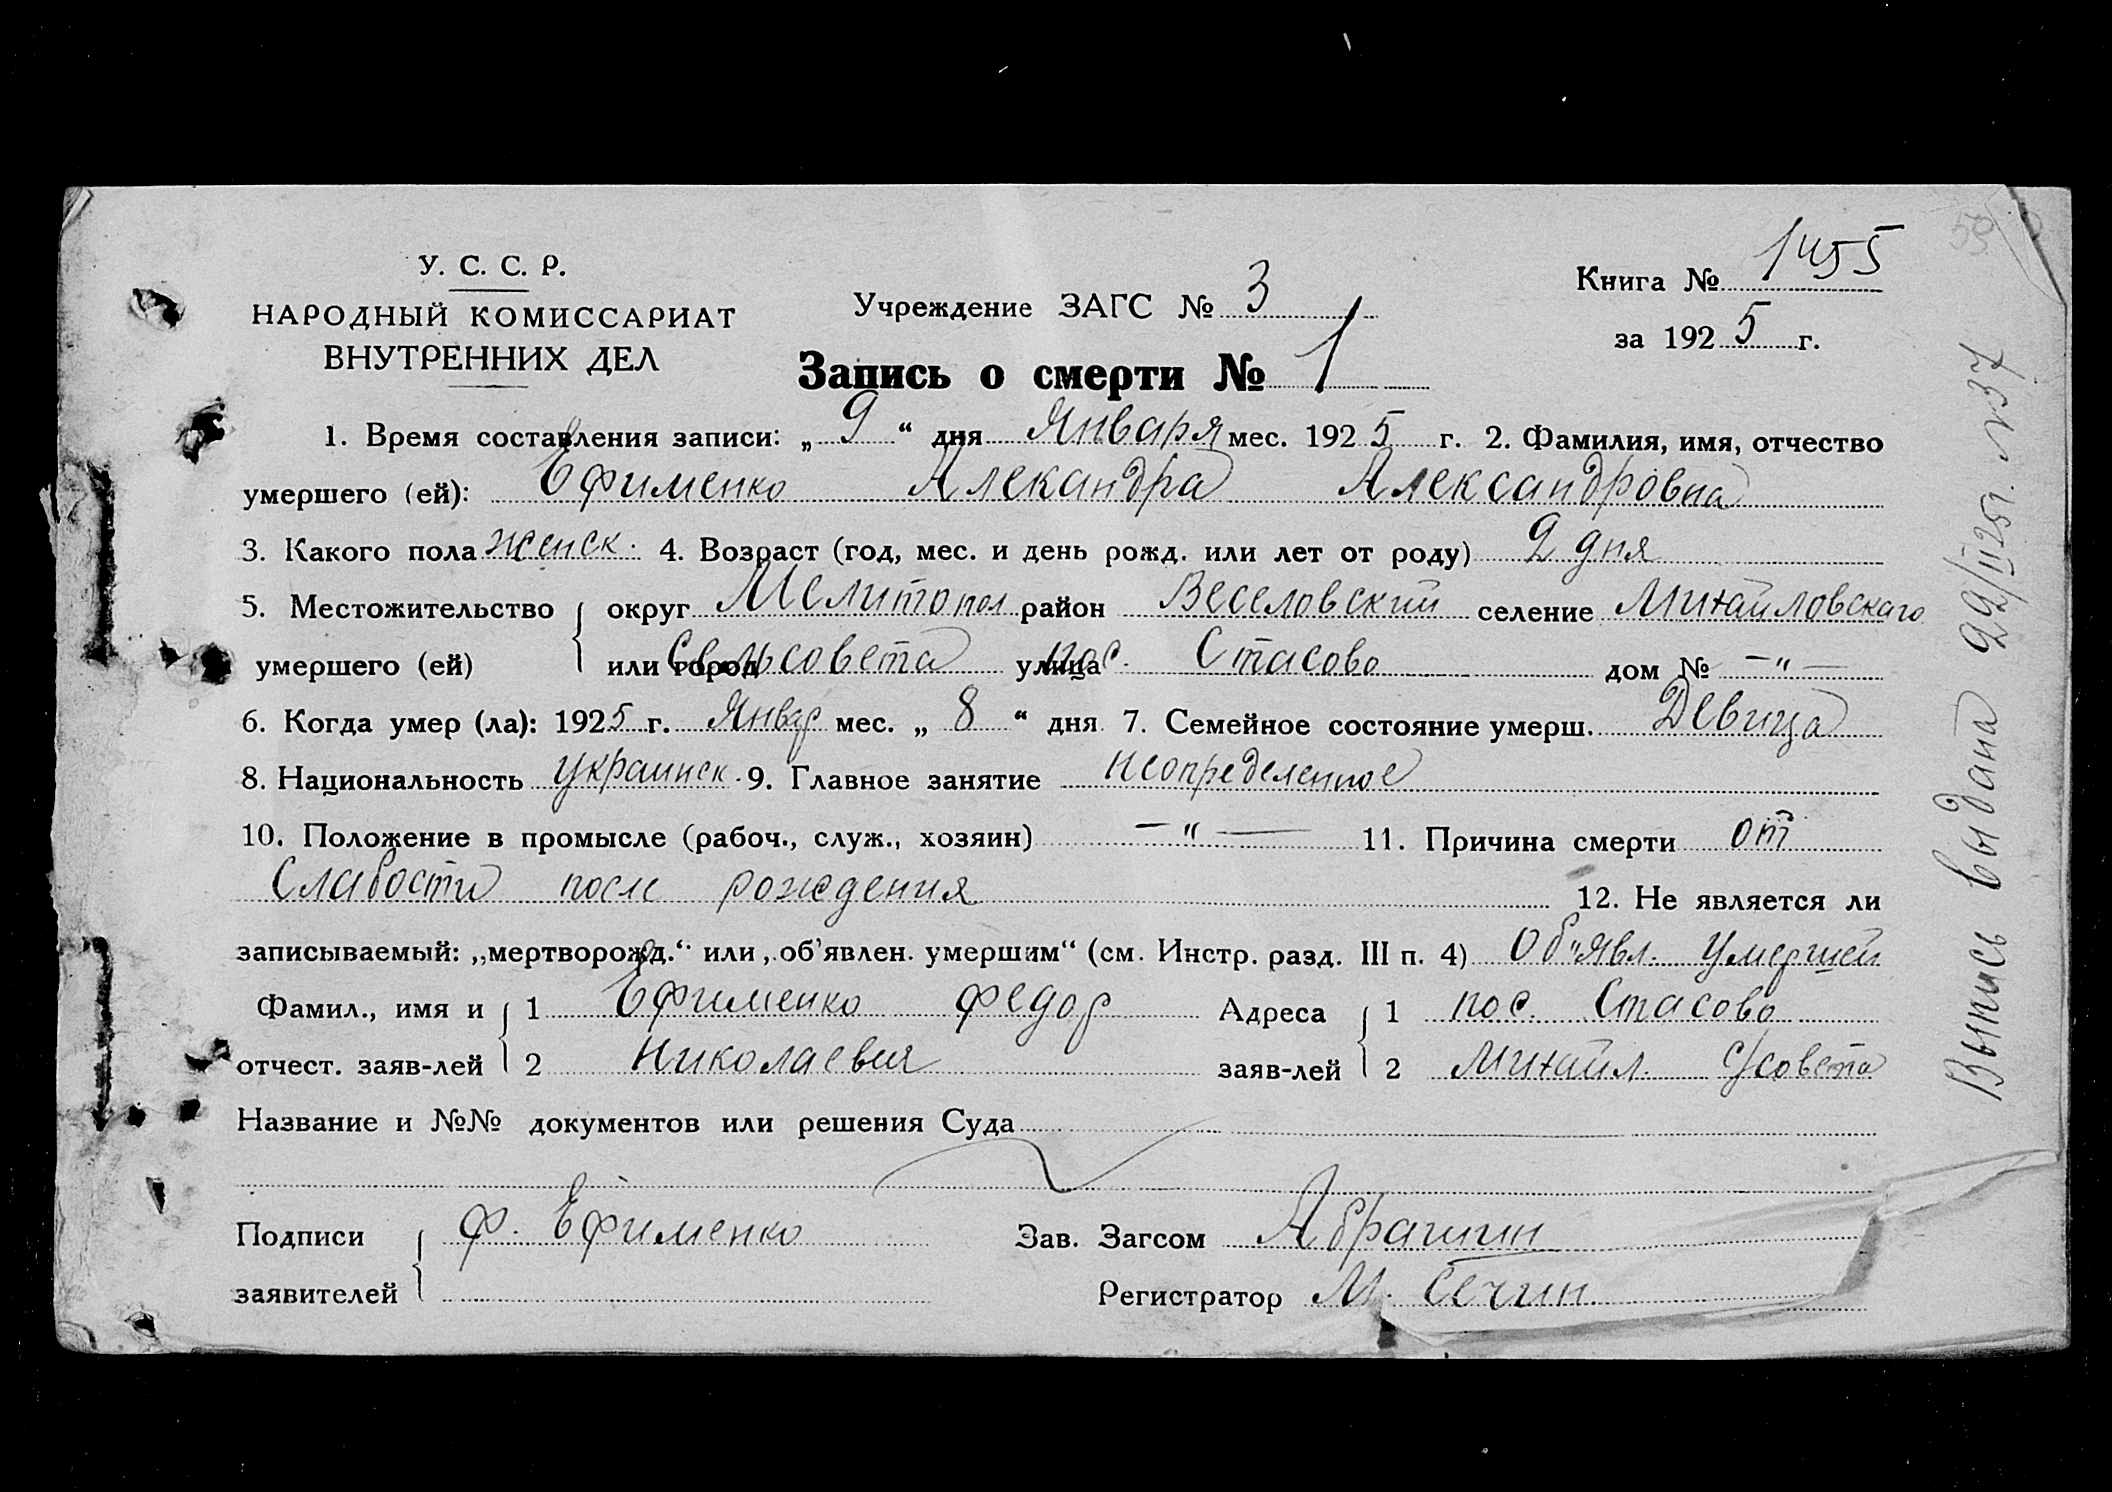 У. С. С. Р.
НАРОДНЫЙ КОМИССАРИАТ
ВНУТРЕННИХ ДЕЛ
Учреждение ЗАГС № 3
Книга № 1455
за 1925 г.
Запись о смерти № 1
1. Время составления записи: „ 9 “ дня Января мес. 1925 г. 2. Фамилия, имя, отчество
умершего (ей): Ефименко Алекандра Александровна
3. Какого пола женск. 4. Возраст (год, мес. и день рожд. или лет от роду) 2 дня
5. Местожительство округ Мелитопол район Веселовский селение Михайловскаго
умершего (ей) или город Сельсовета улица пос. Стасово дом № —"—
6. Когда умер (ла): 1925 г. Январ мес. „ 8 “ дня 7. Семейное состояние умерш. Девица
8. Национальность украинск. 9. Главное занятие неопределенное
10. Положение в промысле (рабоч., служ., хозяин) —"— 11. Причина смерти от
Слабости после рождения 12. Не является ли
записываемый: „мертворожд.“ или „об'явлен. умершим“ (см. Инстр. разд. III п. 4) Об"явл. умершей
Фамил., имя и 1 Ефименко Федор Адреса 1 пос. Стасово
отчест. заяв-лей 2 Николаевич заяв-лей 2 Михайл. с/совета
Название и №№ документов или решения Суда
Подписи Ф. Ефименко Зав. Загсом Абрашин
заявителей Регистратор М. Сечин
Выпись выдана 22/II 25 г. № 37